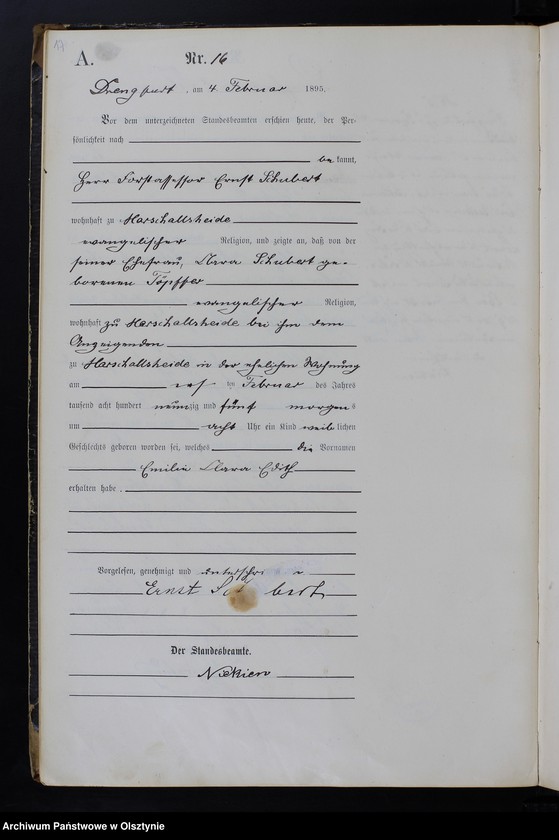 17
A.
Nr. 16
Drengfurt, am 4 Februar 1895.
Vor dem unterzeichneten Standesbeamten erschien heute, der Per-
sönlichkeit nach
be kannt,
Herr Forstassessor Ernst Schubert
wohnhaft zu Marschallsheide
evangelischer Religion, und zeigte an, daß von der
seiner Ehefrau, Clara Schubert ge-
borenen Töpffer
evangelischer Religion,
wohnhaft zu Marschallsheide bei ihm dem
Anzeigenden
zu Marschallsheide in der ehelichen Wohnung
am ten Februar des Jahres
tausend acht hundert neunzig und fünf morgens
um acht Uhr ein Kind weiblichen
Geschlechts geboren worden sei, welches die Vornamen
Emilie Clara Edith
erhalten habe.
Vorgelesen, genehmigt und
Ernst Schubert
Der Standesbeamte.
Archiwum Państwowe w Olsztynie